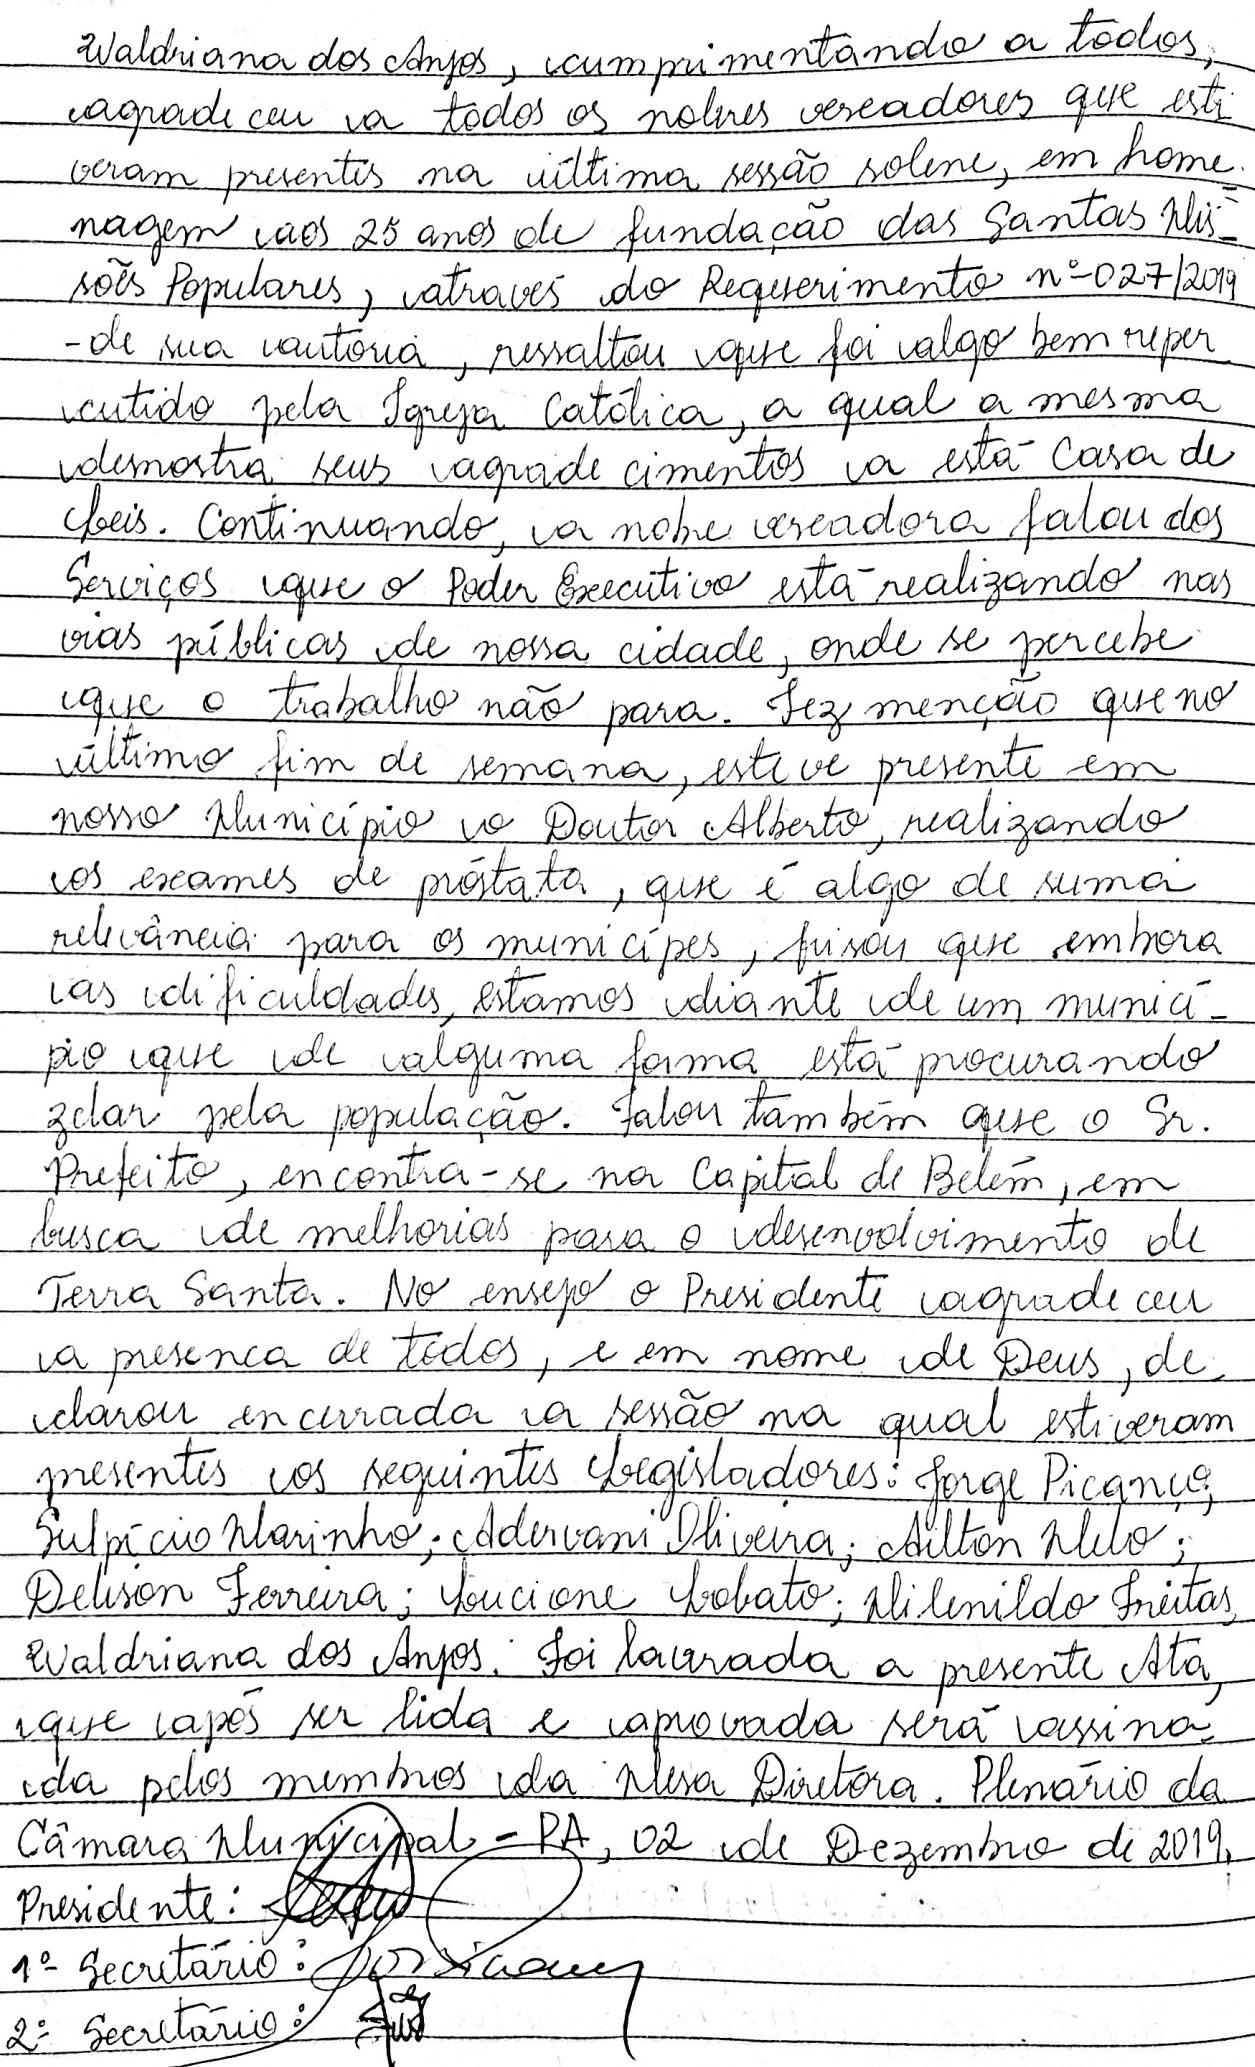 Waldriana dos Anjos, cumprimentando a todos,
agradeceu a todos os nobres vereadores que esti
veram presentes na última sessão solene, em home
nagem aos 25 anos de fundação das Santas Mis-
sões Populares, através do Requerimento nº-027/2019
-de sua autoria, ressaltou que foi algo bem reper
cutido pela Igreja Católica, a qual a mesma
demostra seus agradecimentos a está Casa de
Leis. Continuando, a nobre vereadora falou dos
Serviços que o Poder Executivo está realizando nas
vias públicas de nossa cidade, onde se percebe
que o trabalho não para. Fez menção que no
último fim de semana, esteve presente em
nosso Município o Doutor Alberto, realizando
os exames de próstata, que é algo de suma
relevância para os municípes, frisou que embora
as dificuldades, estamos diante de um municí-
pio que de alguma forma está procurando
zelar pela população. Falou também que o Sr.
Prefeito, encontra-se na Capital de Belém, em
busca de melhorias para o desenvolvimento de
Terra Santa. No ensejo o Presidente agradeceu
a presenca de todos, e em nome de Deus, de
clarou encerrada a sessão na qual estiveram
presentes os seguintes Legisladores: Jorge Picanço;
Sulpício Marinho; Adervani Oliveira; Ailton Melo;
Delison Ferreira; Lucione Lobato; Milenildo Freitas,
Waldriana dos Anjos. Foi lavrada a presente Ata,
que após ser lida e aprovada será assina-
da pelos membros da Mesa Diretora. Plenário da
Câmara Municipal - PA, 02 de Dezembro de 2019.
Presidente:
1º Secretário:
2º Secretário: